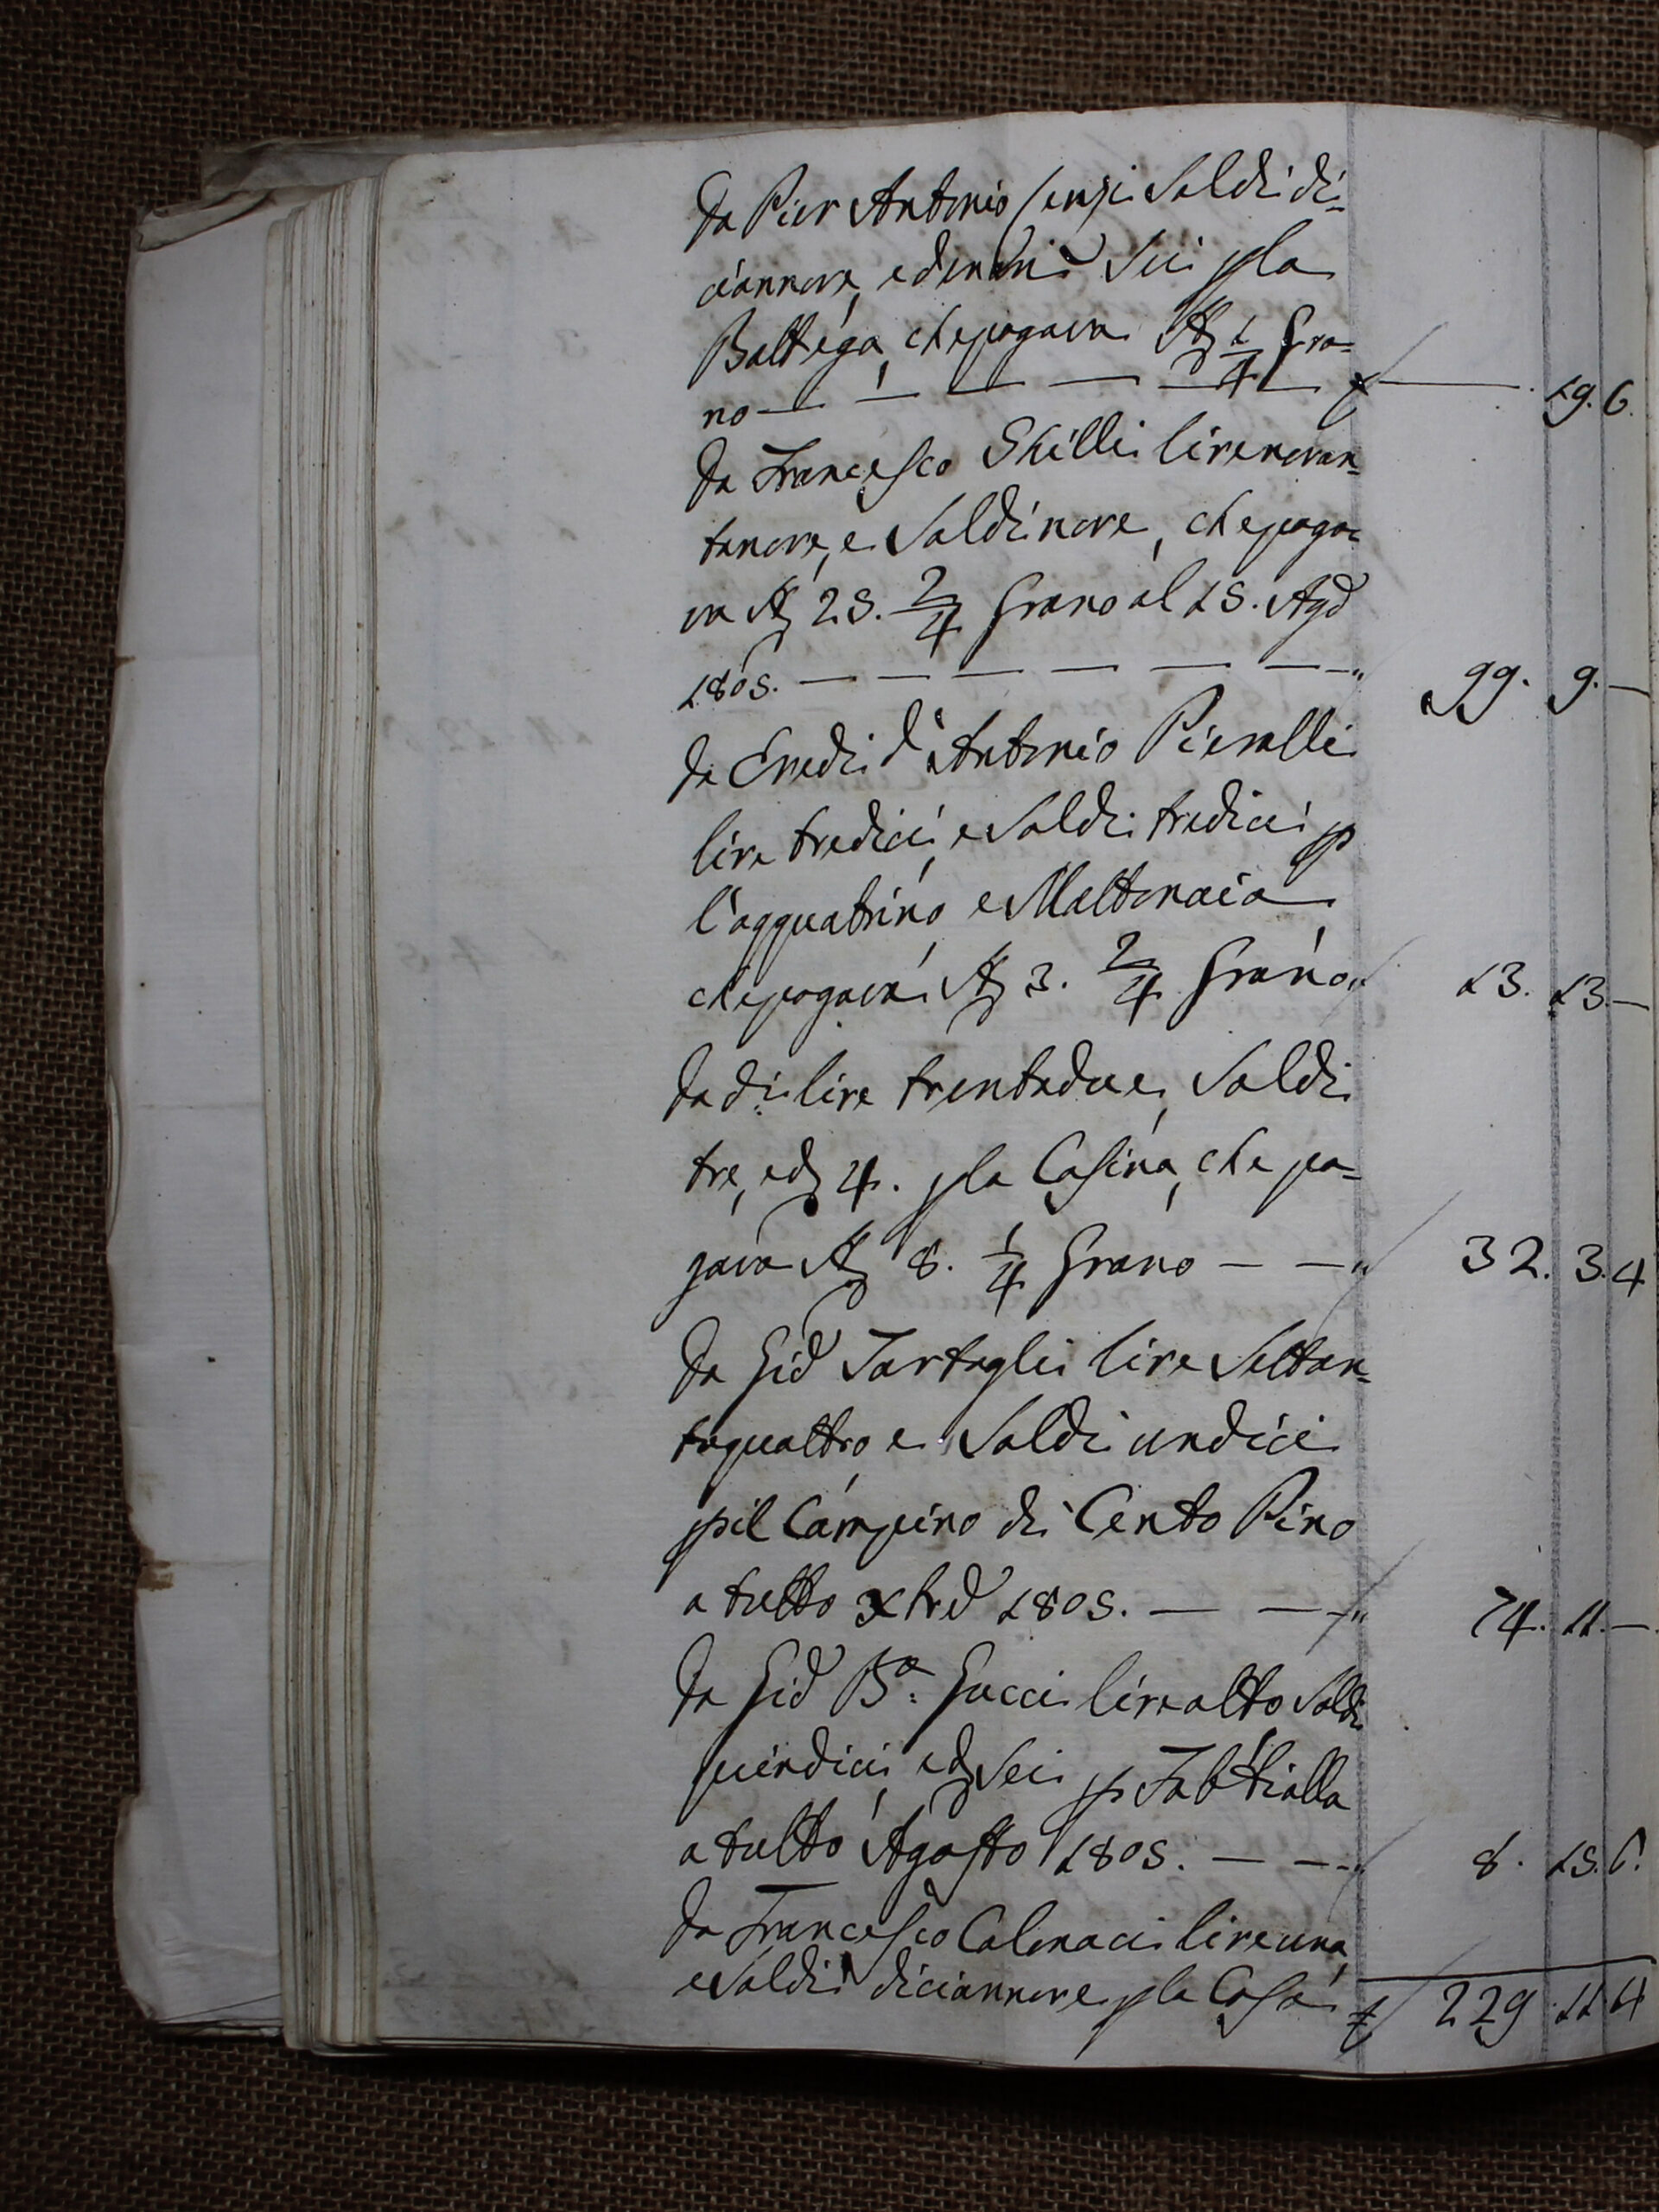 Da Pier Antonio Cenzi Soldi di=
ciannove, e denari Sei p la
Bottega, che pagava St 1/4 Gra=
no — — — — — £ — 19. 6.
Da Francesco Skilli lire novan=
tanove, e Soldi nove, che paga=
va St 25. 2/4 Grano al 15. Ago
1805. — — — — — — " 99. 9. —
Da Eredi d'Antonio Pieralli
lire tredici, e Soldi tredici p
l'agguatrino, e Mattonaia,
che pagava St 3. 2/4 Grano " 13. 13. —
Da di lire trentadue, Soldi
tre, e d 4. p la Casina, che pa=
gava St 8. 1/4 Grano — — " 32. 3. 4
Da Gio Tartagli lire Settan=
taquattro e Soldi undici
p il Campino di Cento Pino
a tutto Xbre 1805. — — " 74. 11. —
Da Gio Ba: Gucci lire otto Soldi
quindici, e d Sei p Fabbrialla
a tutto Agosto 1805. — — " 8. 15. 6.
Da Francesco Colonaci lire una,
e Soldi diciannove p la Casa
£ 229. 11. 4